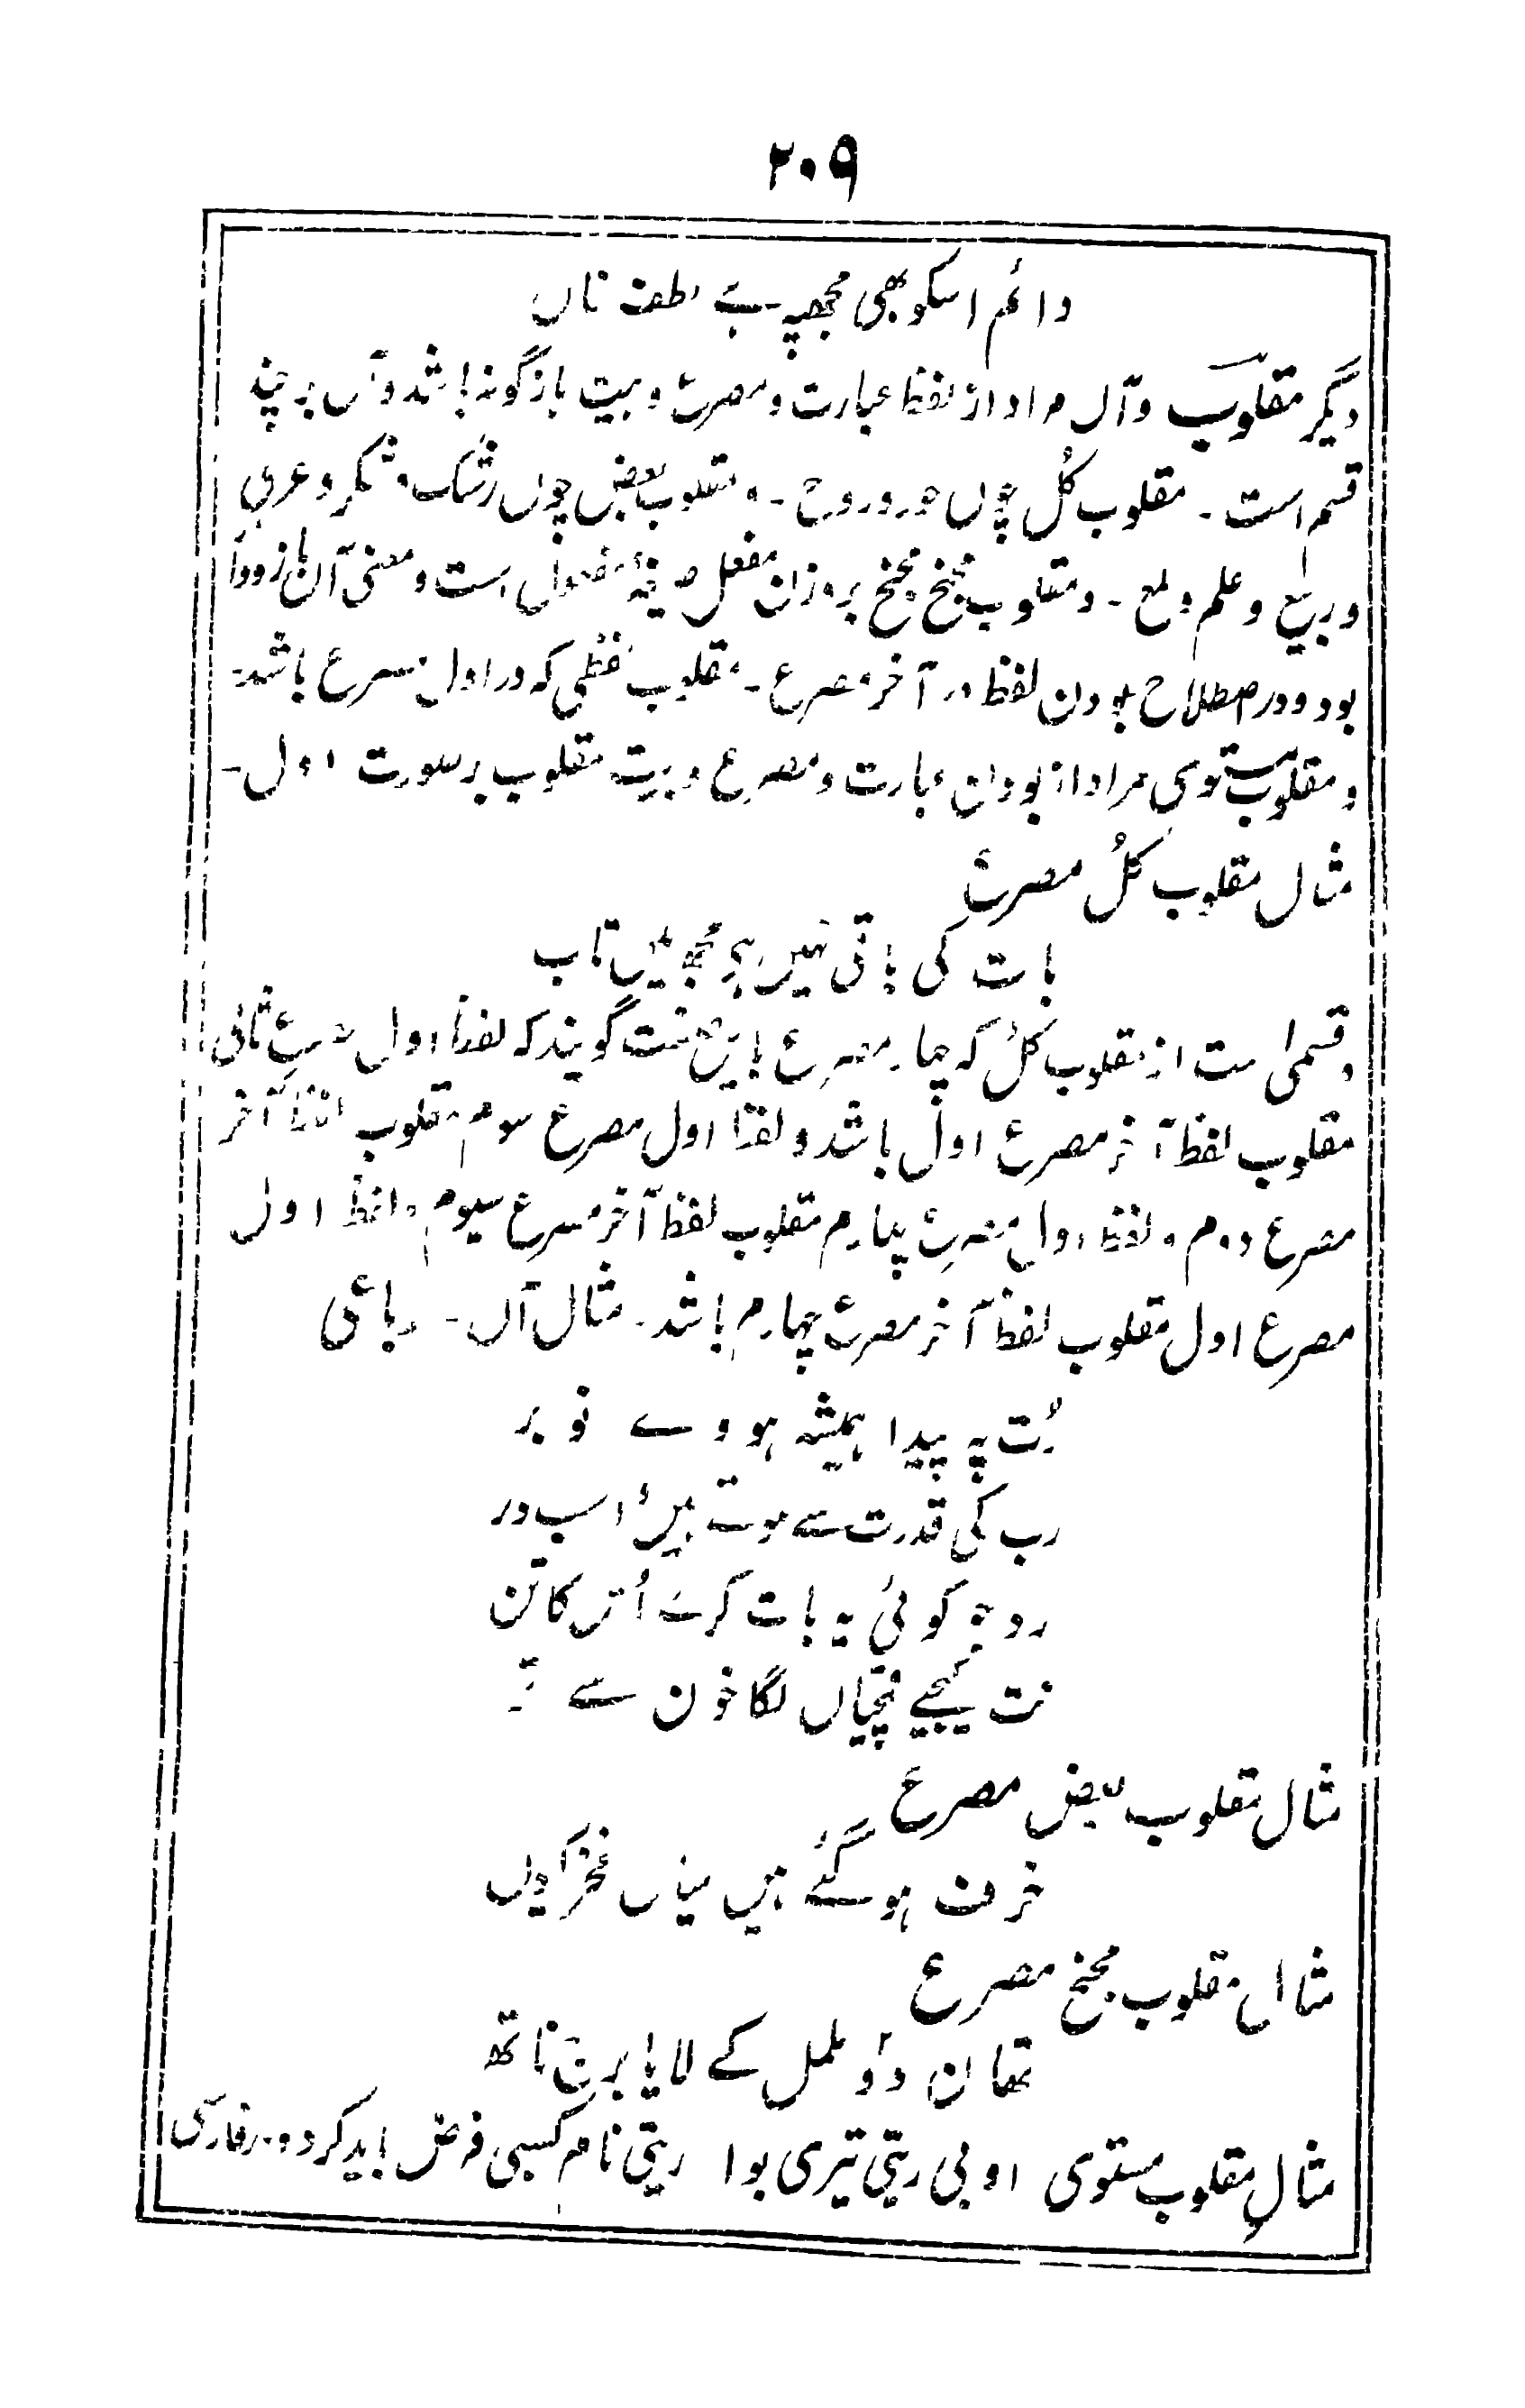 ۲۰۹
دائم اسکو بھی مجھپہ ہے لطف ناں
دیگر مقلوب وآں مراد از لفظ عبارت ومصرع وبیت باژگونہ باشد وآں بر چند
قسم است۔ مقلوب کُل چوں حور وروح۔ ومقلوب بعض چوں رشک وشکر وعربی
وربیع وعلم ولمع۔ ومقلوب مجنخ مجنخ بروزن مفعل صیغۂ مفعول است ومعنی آں بازو دا
بود ودر اصطلاح بودن لفظ در آخر مصرع۔ مقلوب لفظی کہ در اول مصرع باشد۔
ومقلوب مستوی مراد از بودن عبارت ومصرع وبیت مقلوب بر صورت اول۔
مثال مقلوب کُل مصرع
بات کی باقی نہیں ہے مجھ میں تاب
وقسمی است از مقلوب کُل کہ چہار مصرع باین صنعت گویند کہ لفظ اول مصرع ثانی
مقلوب لفظ آخر مصرع اول باشد ولفظ اول مصرع سوم مقلوب لفظ آخر
مصرع دوم ولفظ اول مصرع چہارم مقلوب لفظ آخر مصرع سیوم ولفظ اول
مصرع اول مقلوب لفظ آخر مصرع چہارم باشد۔ مثال آں۔ رباعی
رُت پہ پیدا ہمیشہ ہووے نو بر
رب کی قدرت سے ہوتے ہیں اسپ در
رد جو کوئی یہ بات کرے اُس کا تن
نت کیجیے قیچیاں لگا خون سے تر
مثال مقلوب بعض مصرع
خرف ہو گئے ہیں میاں فخر کویل
مثال مقلوب مجنخ مصرع
تھان دو ململ کے لایا برج ناتھ
مثالِ مقلوب مستوی اوبی ریتی تیری بوا ریتی نام کسبی فرض باید کرد ودر فارسی